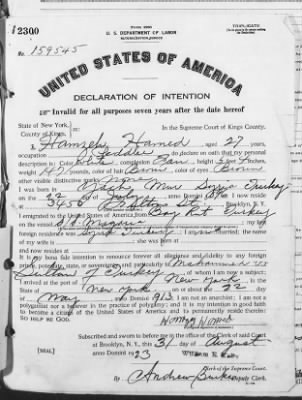 12300
TRIPLICATE
U. S. DEPARTMENT OF LABOR
NATURALIZATION SERVICE
No. 159545
UNITED STATES OF AMERICA
DECLARATION OF INTENTION
Invalid for all purposes seven years after the date hereof
State of New York,
County of Kings,
In the Supreme Court of Kings County.
I, Hamzeh Hamed aged 27 years,
occupation Peddler, do declare on oath that my personal
description is: Color White, complexion Fair, height 5 feet inches,
weight 142 pounds, color of hair Brown, color of eyes Brown
other visible distinctive marks None
I was born in Syria Turkey
on the day of July, anno Domini 1896; I now reside
at St., Brooklyn, N. Y.
I emigrated to the United States of America from Turkey
on the vessel; my last
foreign residence was Turkey; I am not married; the name
of my wife is; she was born at
and now resides at
It is my bona fide intention to renounce forever all allegiance and fidelity to any foreign
prince, potentate, state, or sovereignty, and particularly to Mohammed V
Sultan of Turkey, of whom I am now a subject;
I arrived at the port of New York, in the
State of New York, on or about the 22 day
of May, anno Domini 1913; I am not an anarchist; I am not a
polygamist nor a believer in the practice of polygamy; and it is my intention in good faith
to become a citizen of the United States of America and to permanently reside therein:
SO HELP ME GOD.
Subscribed and sworn to before me in the office of the Clerk of said Court
at Brooklyn, N. Y., this 31 day of August
anno Domini 1923
[SEAL]
Clerk of the Supreme Court.
By Andrew, Deputy Clerk.